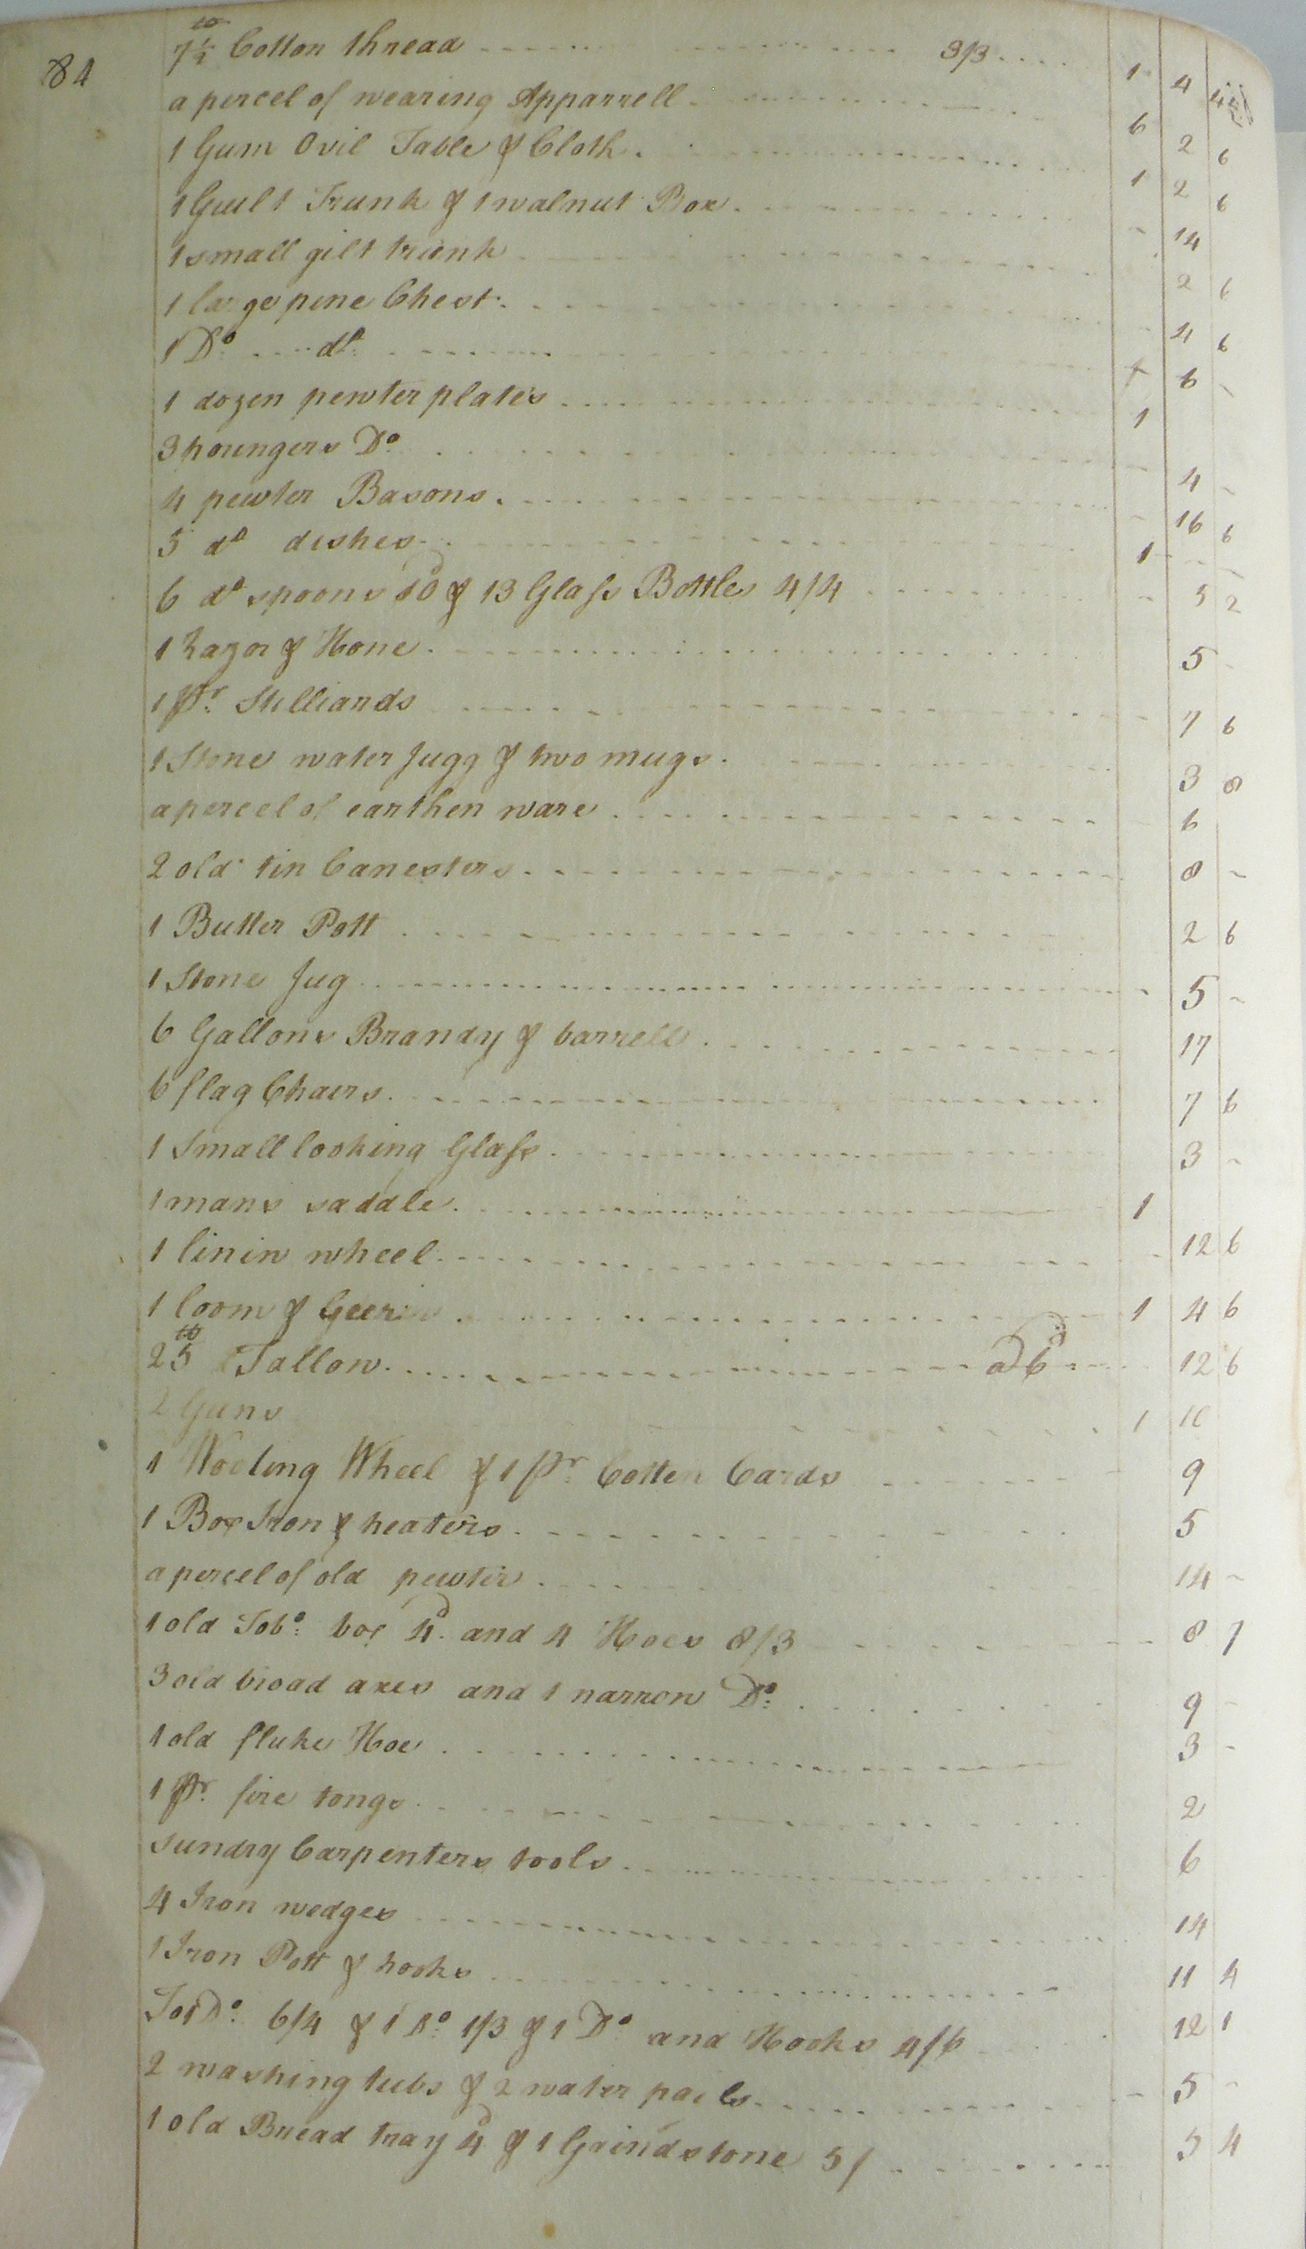 84
7½ lb Cotton thread 3/3 1 4 4½
a percel of wearing Apparrell 6 2 6
1 Gum Ovil Table & Cloth 1 2 6
1 Guilt Trunk & 1 walnut Box - 14
1 small gilt trunk 2 6
1 large pine Chest - 4 6
1 Do do 6 -
1 dozen pewter plates 1
3 poringers Do - 4 -
4 pewter Basons - 16 6
5 do dishes 1 - -
6 do spoons 10d & 13 Glass Bottles 4/4 - 5 2
1 Razor & Hone 5 -
1 pr Stilliards - 7 6
1 Stone water Jugg & two mugs 3 8
a percel of earthen ware - 6
2 old tin Canesters 8 -
1 Butter Pott 2 6
1 Stone Jug - 5 -
6 Gallons Brandy & barrell 17
6 flag Chairs 7 6
1 Small looking Glass 3 -
1 mans saddle 1
1 linin wheel - 12 6
1 loom & Geers 1 4 6
25 lb Tallow a 6d 12 6
2 Guns 1 10
1 Wooling Wheel & 1 pr Cotten Cards - 9
1 Box Iron & heaters 5
a percel of old pewter 14 -
1 old Tobo: box 4d and 4 Hoes 8/3 - 8 7
3 old broad axes and 1 narrow Do: 9 -
1 old fluke Hoe 3 -
1 pr. fire tongs 2
sundry Carpenters tools 6
4 Iron wedges 14
1 Iron Pott & hooks 11 4
1 Do: 6/4 & 1 Do: 1/3 & 1 Do and Hooks 4/6 12 1
2 washing tubs & 2 water pails - 5 -
1 old Bread tray 4d & 1 Grindstone 5/ 5 4